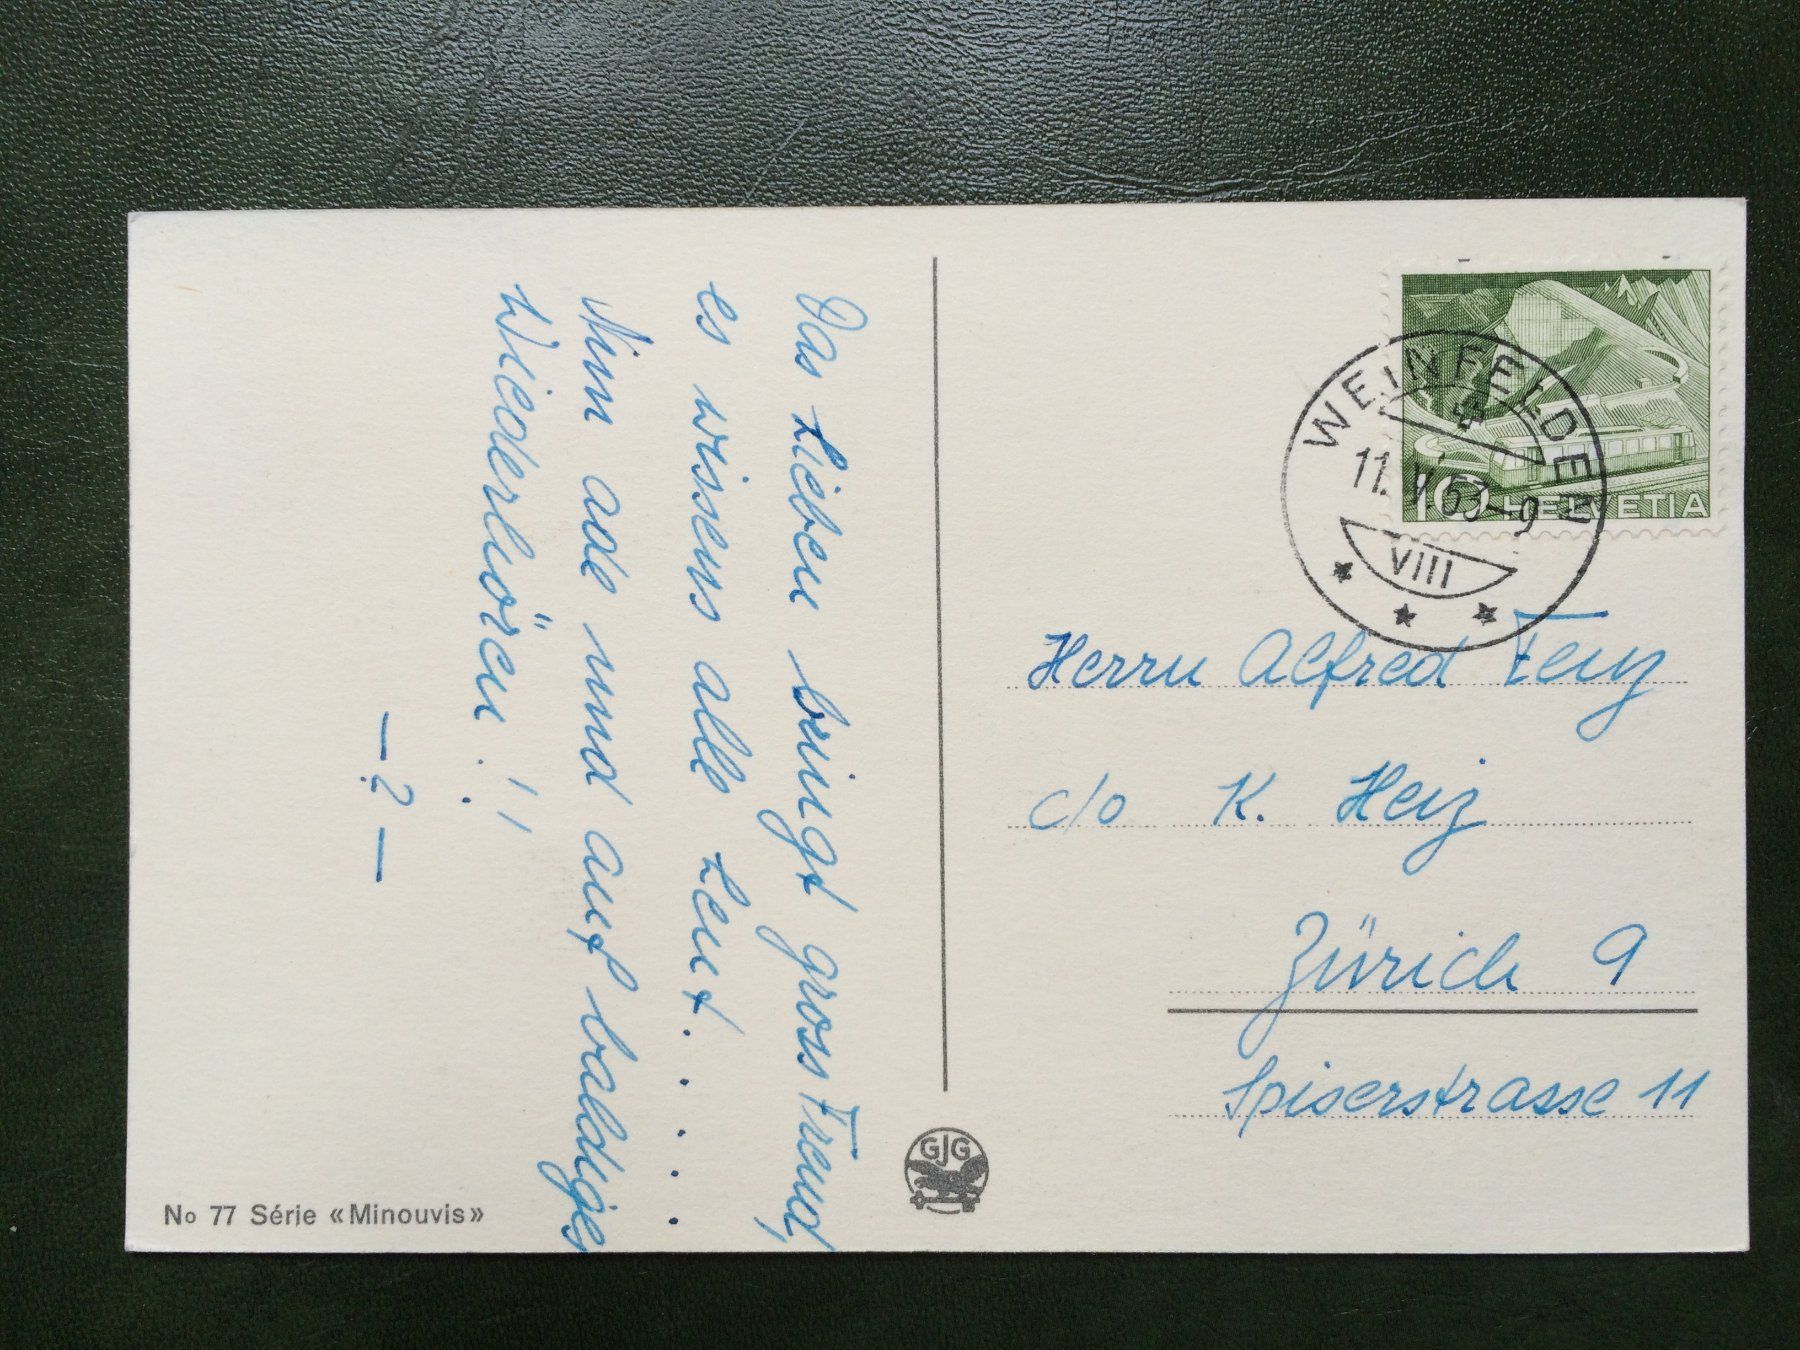 Das Lieben bringt gross Freud,
es wisens alle Leut. . . . .
Nun ade und auf baldiges
Wiederhören!!
—?—
No 77 Série «Minouvis»
GJG
WEINFELDEN
11. V. 53–9
VIII
10 HELVETIA
Herrn Alfred
c/o K.
Zürich 9
Spiserstrasse 11